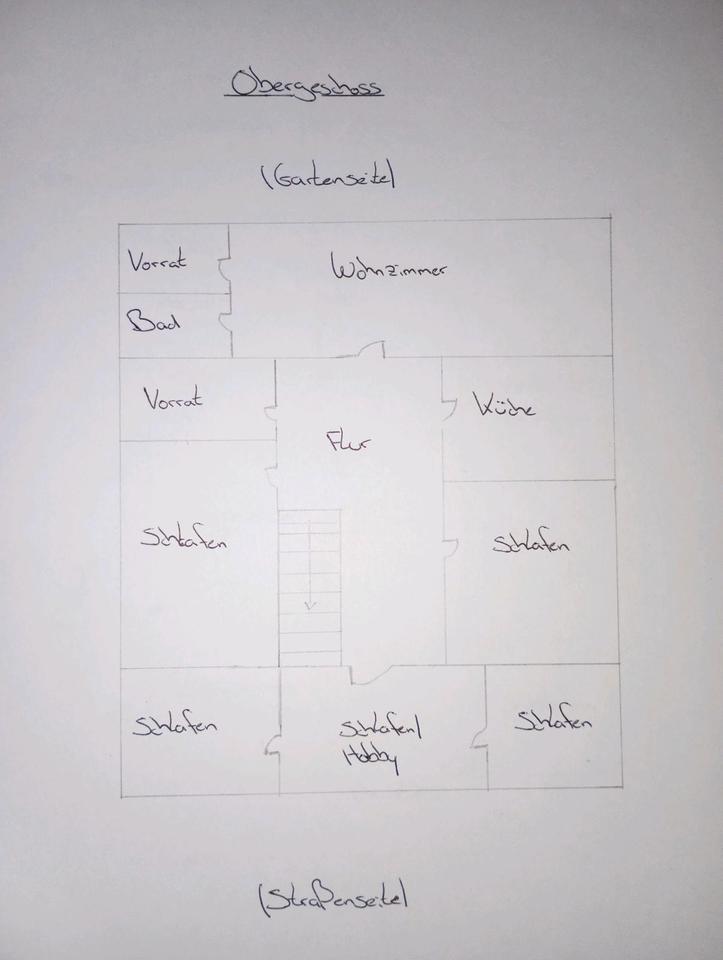 Obergeschoss
(Gartenseite)
Vorrat
Wohnzimmer
Bad
Vorrat
Küche
Flur
Schlafen
Schlafen
Schlafen
Schlafen/
Hobby
Schlafen
(Straßenseite)